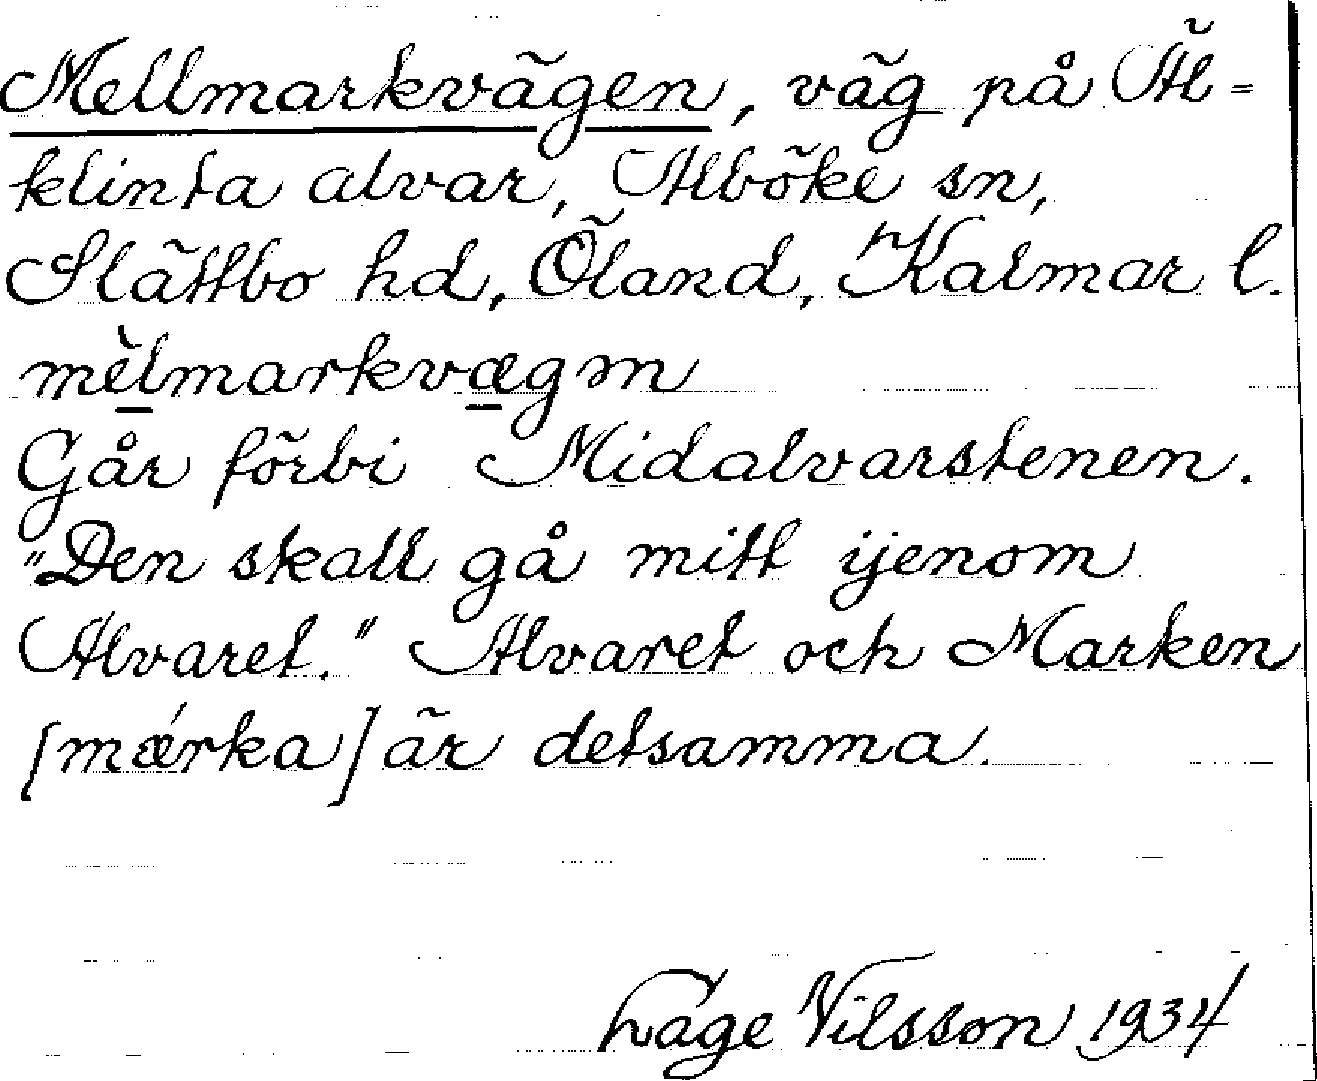 Mellmarkvägen, väg på Äl-
klinta alvar, Alböke sn,
Slättbo hd, Öland, Kalmar l.
mèlmarkvægm
Går förbi Midalvarstenen.
"Den skall gå mitt ijenom
Alvaret." Alvaret och Marken
[mǽrka] är detsamma.
Lage Nilsson 1934